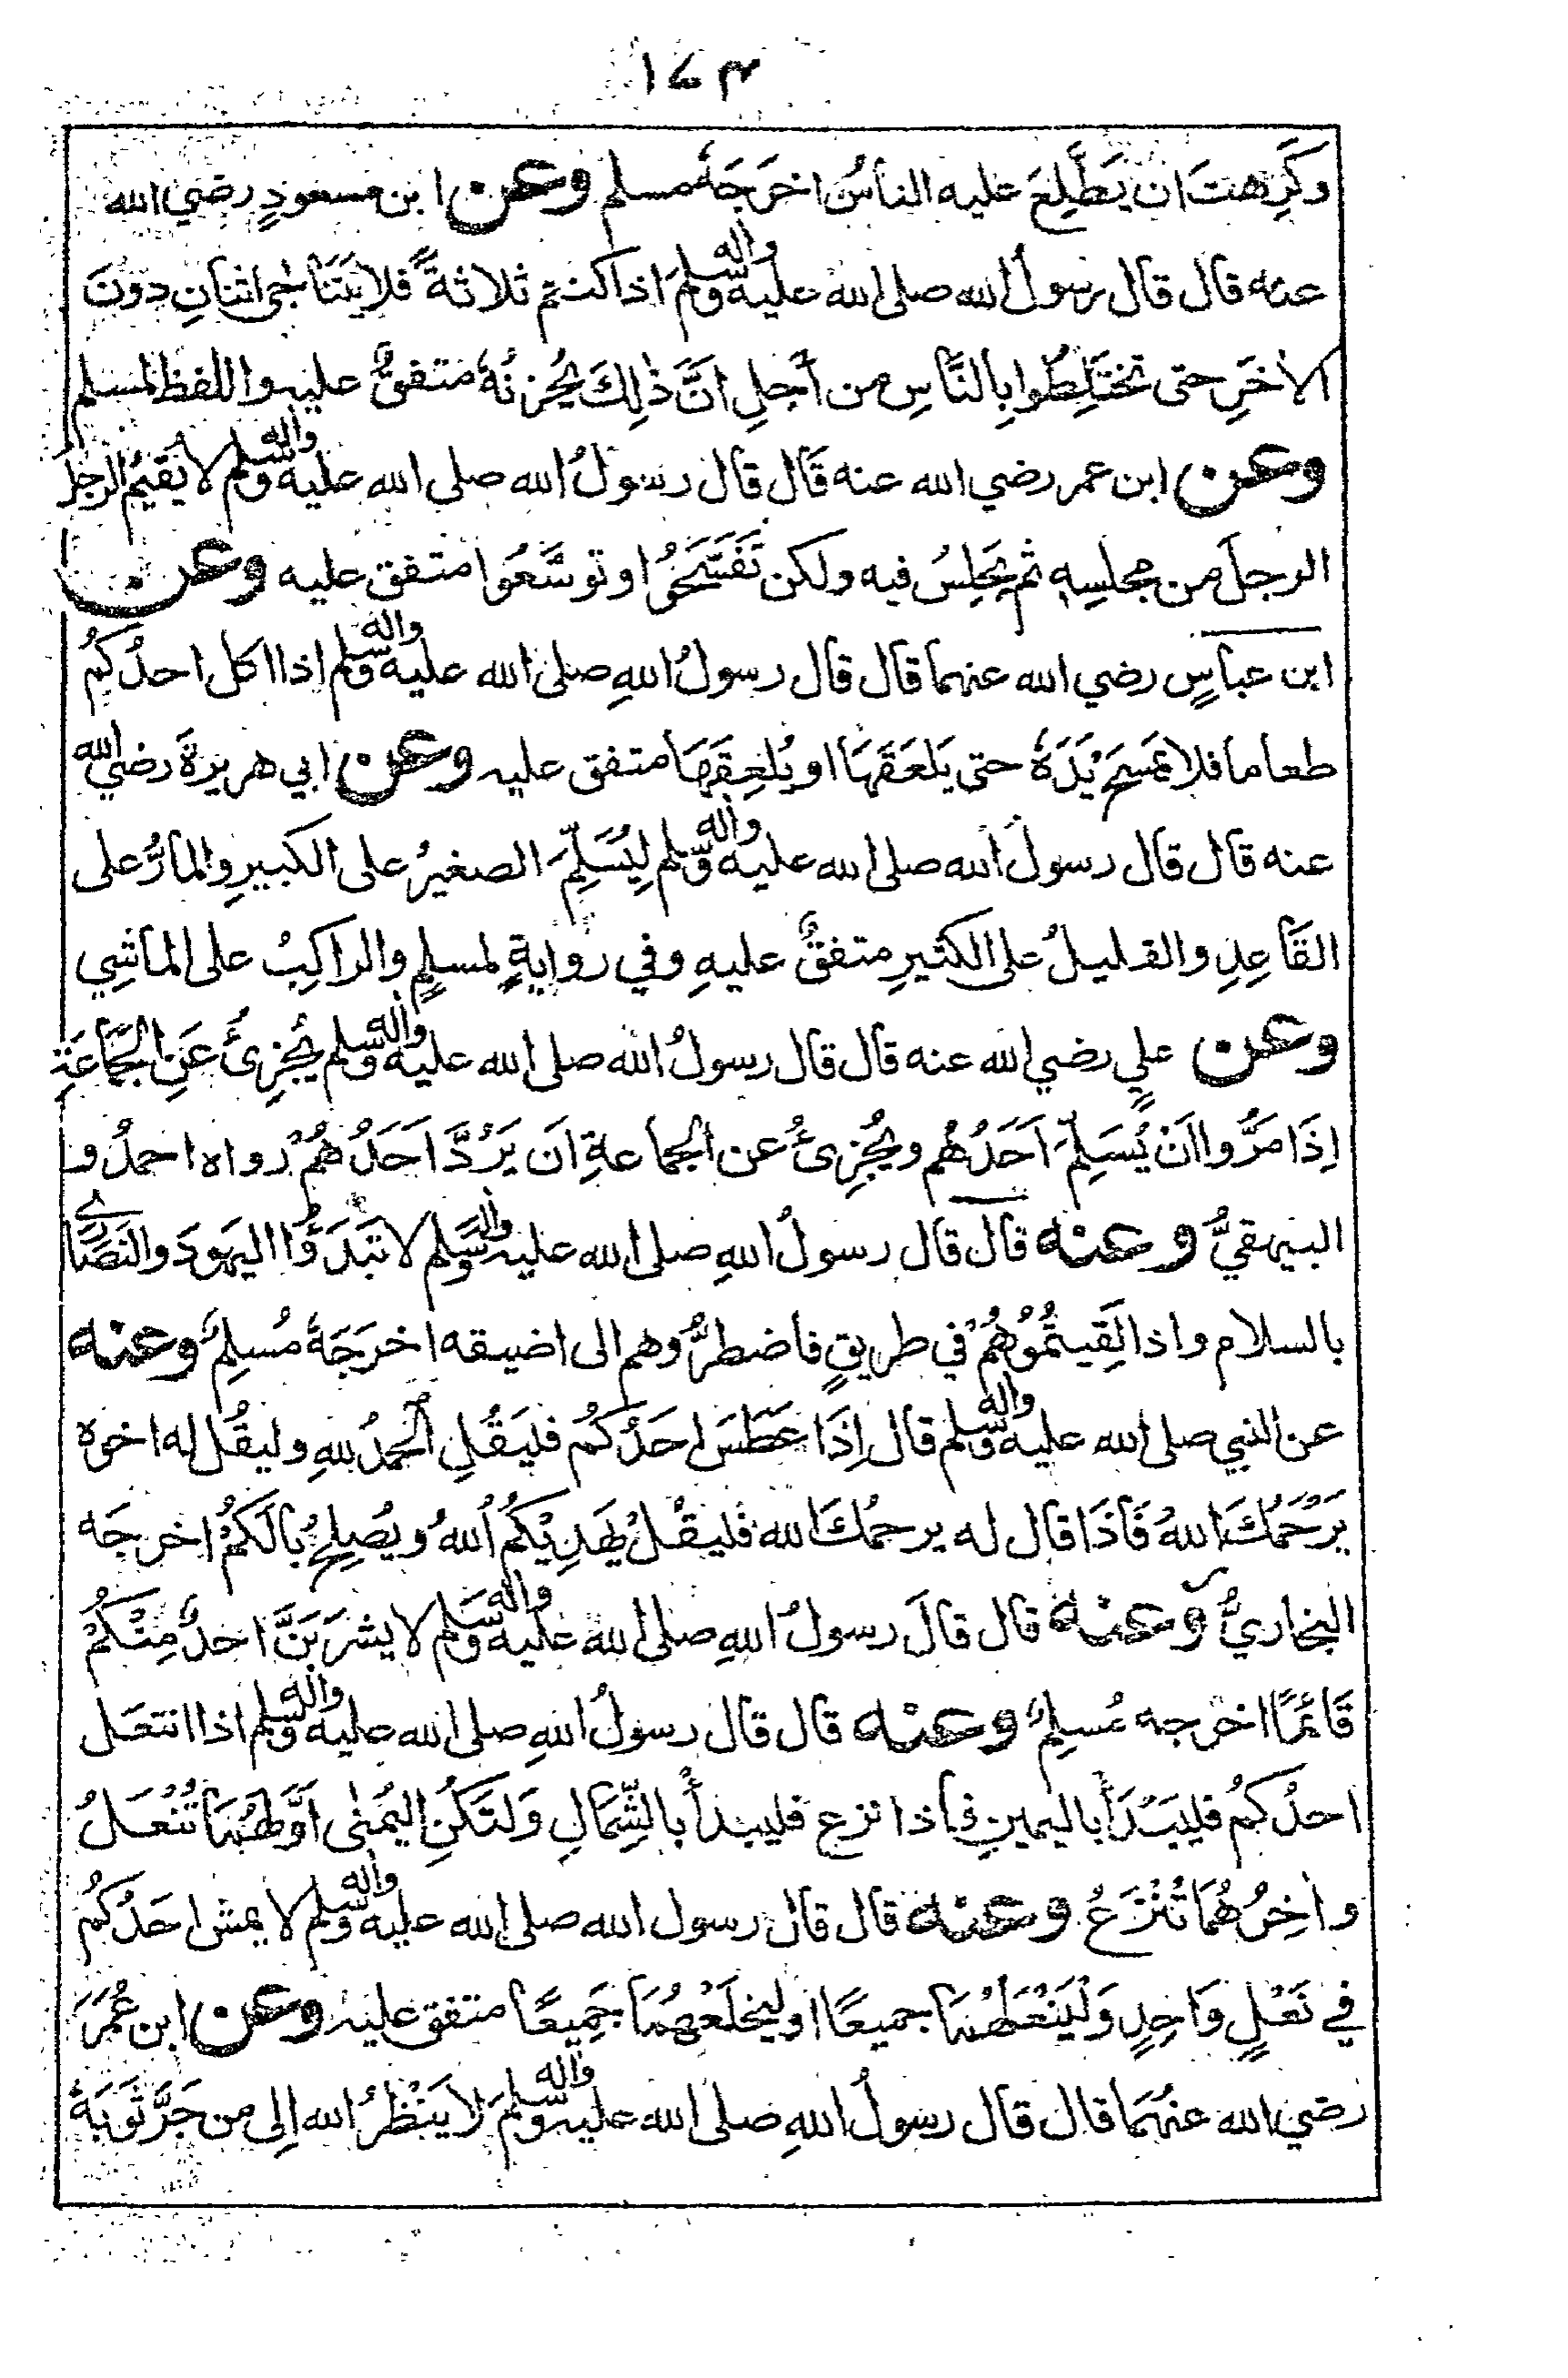 ١٧٣
وَكَرِهتَ ان يَطَّلِعَ عليه الناسُ اخرَجَهٗ مسلم وعن ابن مسعودٍ رضي الله
عنه قال قال رسولُ الله صلى الله عليه واٰله وسلم اذا كنتم ثلاثةً فلا يَتَنَاجى اثنانِ دونَ
الاٰخَرِ حتى تختَلِطُوا بِالنَّاسِ من أجلِ انَّ ذٰلِكَ يُحزِنُهٗ متفقٌ عليه واللفظ لمسلم
وعن ابن عمر رضي الله عنه قَال قال رسولُ الله صلى الله عليه واٰله وسلم لا يُقيمُ الرجلُ
الرجلَ من مجلسِهٖ ثم يَجلِسُ فيه ولكن تَفَسَّحُوا وتوسَّعُوا متفق عليه وعن
ابن عباسٍ رضي الله عنهما قال قال رسولُ اللهِ صلى الله عليه واٰله وسلم اِذا اكل احدُكُم
طعاما فلا يَمسَح يَدَهٗ حتى يَلعَقَهَا او يُلعِقَهَا متفق عليه وعن ابي هريرةَ رضي الله
عنه قال قال رسولُ الله صلى الله عليه واٰله وسلم لِيُسَلِّمَ الصغيرُ على الكبيرِ والمارُّ على
القَاعِدِ والقليلُ على الكثيرِ متفقٌ عليهِ وفي روايةٍ لمسلمٍ والراكِبُ على الماشِي
وعن عليٍ رضي الله عنه قال قال رسولُ الله صلى الله عليه واٰله وسلم يُجزِئُ عَنِ الجَمَاعَةِ
اِذَا مَرُّوا اَنْ يُسَلِّمَ اَحَدُهُم ويُجزِئُ عن الجماعةِ اَن يَرُدَّ اَحَدُهُمْ رواه احمدُ و
البيهقيُّ وعنه قال قال رسولُ اللهِ صلى الله عليه واٰله وسلم لا تَبْدَؤُا اليهودَ والنَصَارٰى
بالسلام واذا لَقِيتُمُوْهُمْ في طريقٍ فاضطرُّوهم الى اضيقه اخرَجَهٗ مُسلِمٌ وعنه
عن النبي صلى الله عليه واٰله وسلم قال اِذَا عَطَسَ احَدُكُم فليَقُلِ الحمدُ للهِ وليقُل له اخوه
يَرْحَمُكَ اللهُ فَاذَا قال له يرحمُكَ الله فليقُلْ يَهدِيْكُمُ اللهُ ويُصلِحُ بالَكُمْ اخرجَه
البخاريُّ وعنه قال قالَ رسولُ اللهِ صلى الله عليه واٰله وسلم لا يشرَبَنَّ احدٌ مِنْكُمْ
قَائِمًا اخرجه مُسلِمٌ وعنه قال قال رسولُ اللهِ صلى الله عليه واٰله وسلم اذا انتعَل
احدُكُمُ فليَبْدَأ باليمينِ فاذا نزع فليبدأ بالشِّمَالِ وَلتَكُنِ اليُمنٰى اوَّلَهُمَا تُنْعَلُ
واٰخِرُهُمَا تُنْزَعُ وعنه قال قال رسول الله صلى الله عليه واٰله وسلم لا يمش احَدُكُم
في نَعْلٍ وَاحِدٍ وَلْيَنْعَلْهُمَا جميعًا او ليخلَعْهُمَا جَمِيعًا متفق عليه وعن ابن عُمَرَ
رضي الله عنهُمَا قال قال رسولُ اللهِ صلى الله عليه واٰله وسلم لا يَنْظُرُ الله اِلى من جَرَّ ثَوبَهٗ